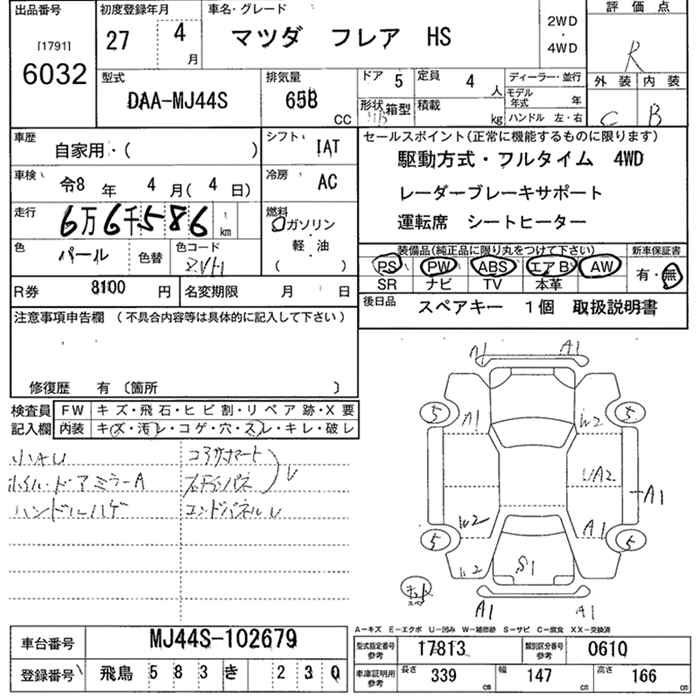 出品番号
[1791]
6032
初度登録年月
27 4 月
車名・グレード
マツダ フレア HS
2WD
・
4WD
評価点
R
型式
DAA-MJ44S
排気量
658 CC
ドア 5
定員 4 人
形状 箱型
積載 kg
ディーラー・並行
モデル年式 年
ハンドル 左・右
外装 内装
C B
車歴
自家用・( )
シフト
IAT
車検
令8 年 4 月 ( 4 日)
冷房
AC
走行
6万6千586 km
燃料
ガソリン
軽・油
( )
色
パール
色替
色コード
ZVH
R券 8100 円
名変期限 月 日
セールスポイント(正常に機能するものに限ります)
駆動方式・フルタイム 4WD
レーダーブレーキサポート
運転席 シートヒーター
装備品(純正品に限り丸をつけて下さい)
PS PW ABS エアB AW
SR ナビ TV 本革
新車保証書
有・無
後日品 スペアキー 1個 取扱説明書
注意事項申告欄 (不具合内容等は具体的に記入して下さい)
修復歴 有 (箇所 )
検査員
記入欄
FW キズ・飛石・ヒビ割・リペア跡・X要
内装 キズ・汚レ・コゲ・穴・スレ・キレ・破レ
小AU
ホイル・ドアミラーA
ハンドルハゲ
コアサポート
ステップパネ
U
エンドパネルU
A1 A1
5 5
A1 W2
UA2
A1
W2 A1
5 5
W2
S1
A1 A1
A-キズ E-エクボ U-凹み W-補修跡 S-サビ C-腐食 XX-交換済
車台番号 MJ44S-102679
登録番号 飛鳥 583 き 230
型式指定番号
参考
17813
類別区分番号
参考
0610
車庫証明用
参考
長さ 339 cm
幅 147 cm
高さ 166 cm